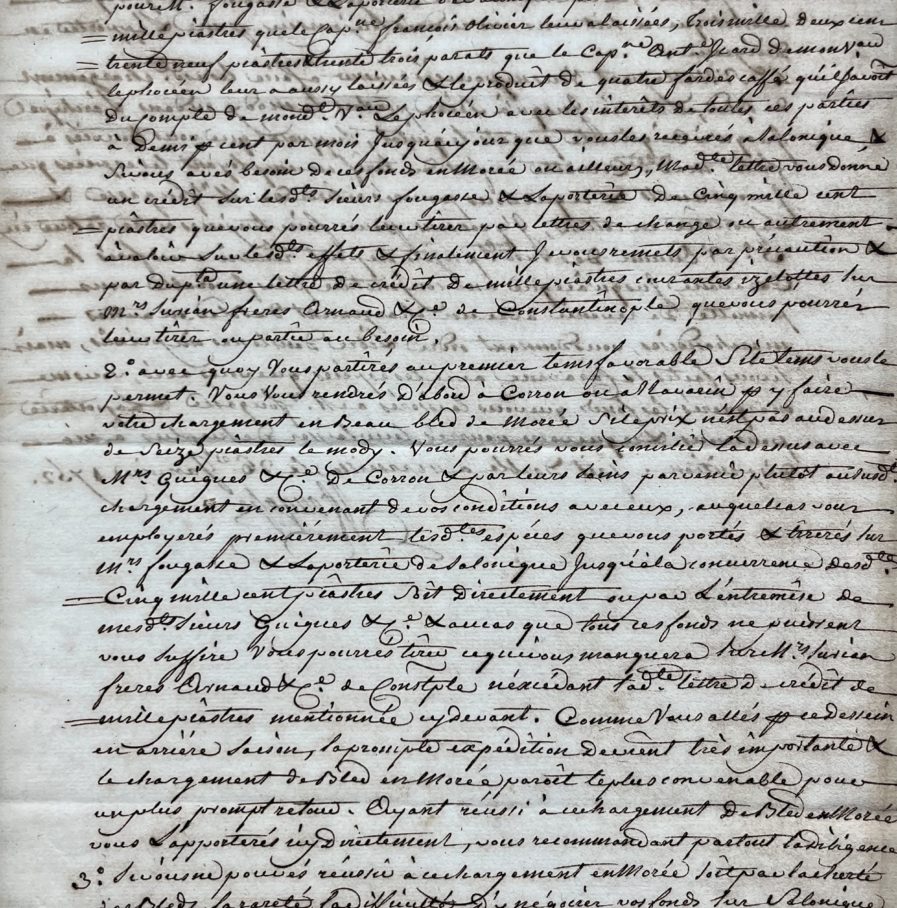 pour Mrs. fougasse & Laporterie
mille piastres que le Capne. françois Olivier leur a laissées, trois mille deux cent
trente neuf piastres & trente trois parats que le Capne. Ante. Icard de mon Vau
le phocéen leur a aussy laissés & le produit de quatre fardes caffé qu'il avoit
du compte de mond. Vau. Le phocéen avec les interêts de toutes ces parties
à demi p cent par mois Jusqu'au jour que vous les recevrés a Salonique &
Si vous avés besoin de ces fonds en Morée ou ailleurs, Madte. lettre vous donne
un crédit sur lesds. sieurs fougasse & Laporterie De Cinq mille cent
piastres que vous pourrés leur tirer par lettres de change ou autrement
à valoir sur lesds. effets & finalement Je vous remets par précaution &
par dupta. une lettre de crédit de mille piastres courantes izelottes sur
Mrs. Surian freres Arnaud & Ce. de Constantinople que vous pourrés
leur tirer ou partie au besoin.
2°. avec quoy Vous partirés au premier tems favorable Si le tems vous le
permet. Vous Vous rendrés D'abord à Corron ou à Navarin p y faire
votre chargement en Beau bled de Morée Si le prix n'est pas au dessus
de Seize piastres le mody. Vous pourrés vous concilier la dessus avec
Mrs. Guigues & Ce. De Corron & par leurs soins parvenir plutôt au susd.
chargement en convenant de vos conditions avec eux, auquel cas vous
employerés premiérement lesdtes. espéces que vous portés & tirerés sur
Mrs. fougasse & Laporterie de Salonique Jusqu'à la concurrence desdtes.
Cinq mille cent piastres Soit directement ou par L'entremise de
mesds. Sieurs Guigues & Ce. & au cas que tous ces fonds ne puissent
vous suffire Vous pourrés tirer ce qui vous manquera sur Mrs. Surian
freres Arnaud & Ce. de Constple n'éxcédant ladte. lettre de crédit de
mille piastres mentionnée cy devant. Comme Vous allés p ce dessein
en arriére saison, la prompte expédition devient très importante &
le chargement de Bled en Morée paroît le plus convenable pour
un plus prompt retour. Ayant réussi à ce chargement De Bled en Morée
vous L'apporterés icy directement, vous recommandant partout la diligence
3°. Si vous ne pouvés réussir à ce chargement en Morée soit par la cherté
des Bleds, la rareté, la difficulté D'y négocier vos fonds sur Salonique